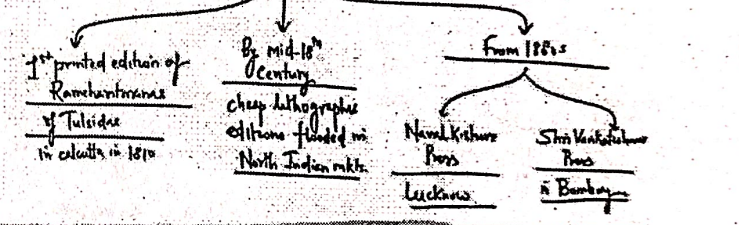 1st printed edition of
Ramcharitmanas
of Tulsidas
in calcutta in 1810
By mid-18th
Century
cheap lithographic
editions flooded in
North Indian mkts.
From 1880s
Naval Kishore
Press
Lucknow
Shri Venkateshwar
Press
in Bombay